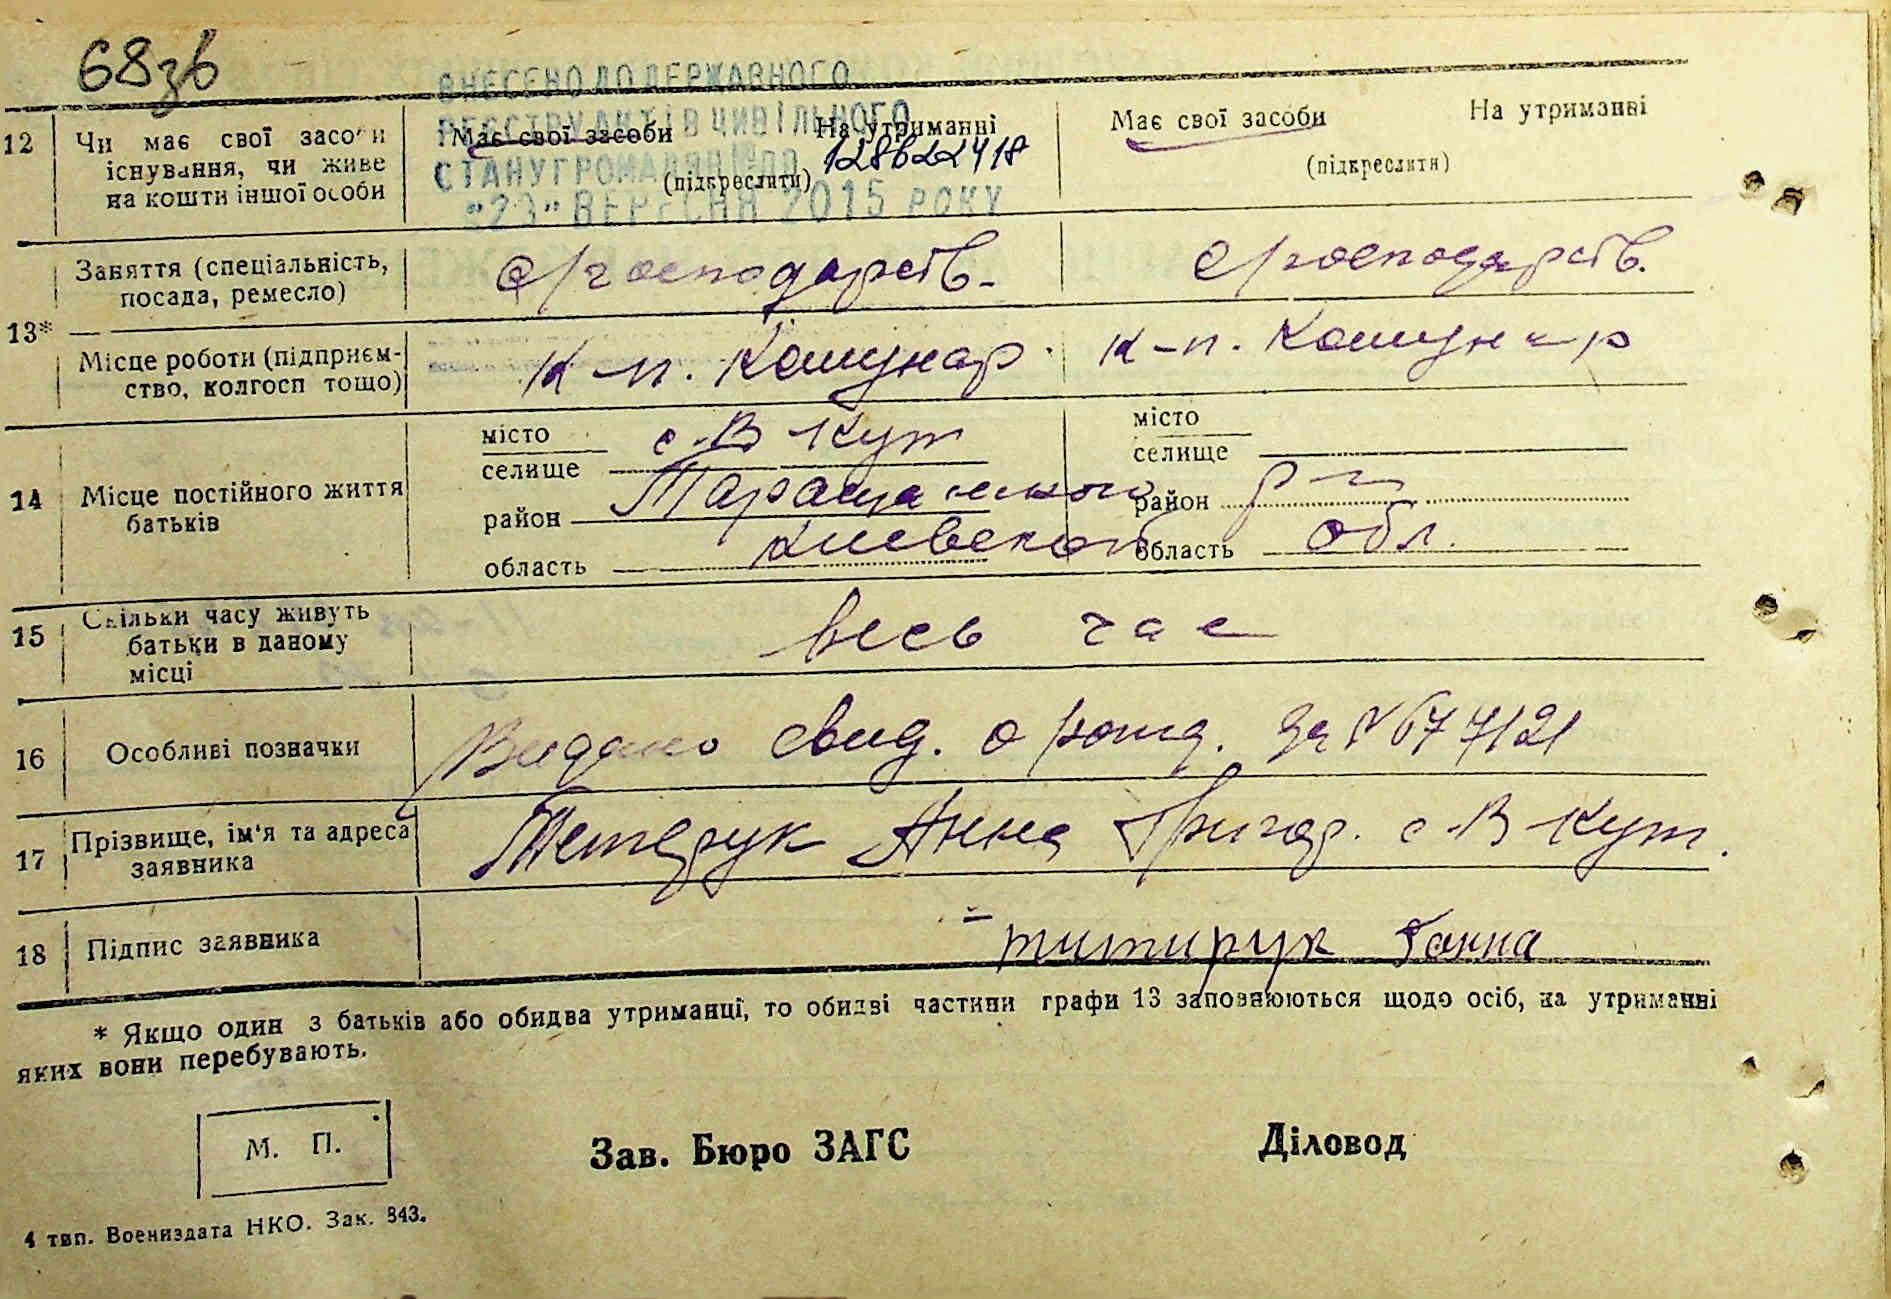 68зв
ВНЕСЕНО ДО ДЕРЖАВНОГО
РЕЄСТРУ АКТІВ ЦИВІЛЬНОГО
СТАНУ ГРОМАДЯН №
"23" ВЕРЕСНЯ 2015 РОКУ
12 Чи має свої засоби існування, чи живе на кошти іншої особи
Має свої засоби На утриманні
(підкреслити)
Має свої засоби На утриманні
(підкреслити)
13* Заняття (спеціальність, посада, ремесло)
с/господарств. с/господарств.
Місце роботи (підприєм-
ство, колгосп тощо)
к-п. Комунар к-п. Комунар
14 Місце постійного життя
батьків
місто
селище с. В Кут
район Таращанского
область Киевской
місто
селище
район р-н
область обл.
15 Скільки часу живуть
батьки в даному
місці
весь час
16 Особливі позначки
Видано свид. о рожд. за № 677121
17 Прізвище, ім'я та адреса
заявника
Тетерук Анна Григор. с. В Кут.
18 Підпис заявника
титирук Ганна
* Якщо один з батьків або обидва утриманці, то обидві частини графи 13 заповнюються щодо осіб, на утриманні
яких вони перебувають.
М. П.
Зав. Бюро ЗАГС Діловод
4 тип. Воениздата НКО. Зак. 843.